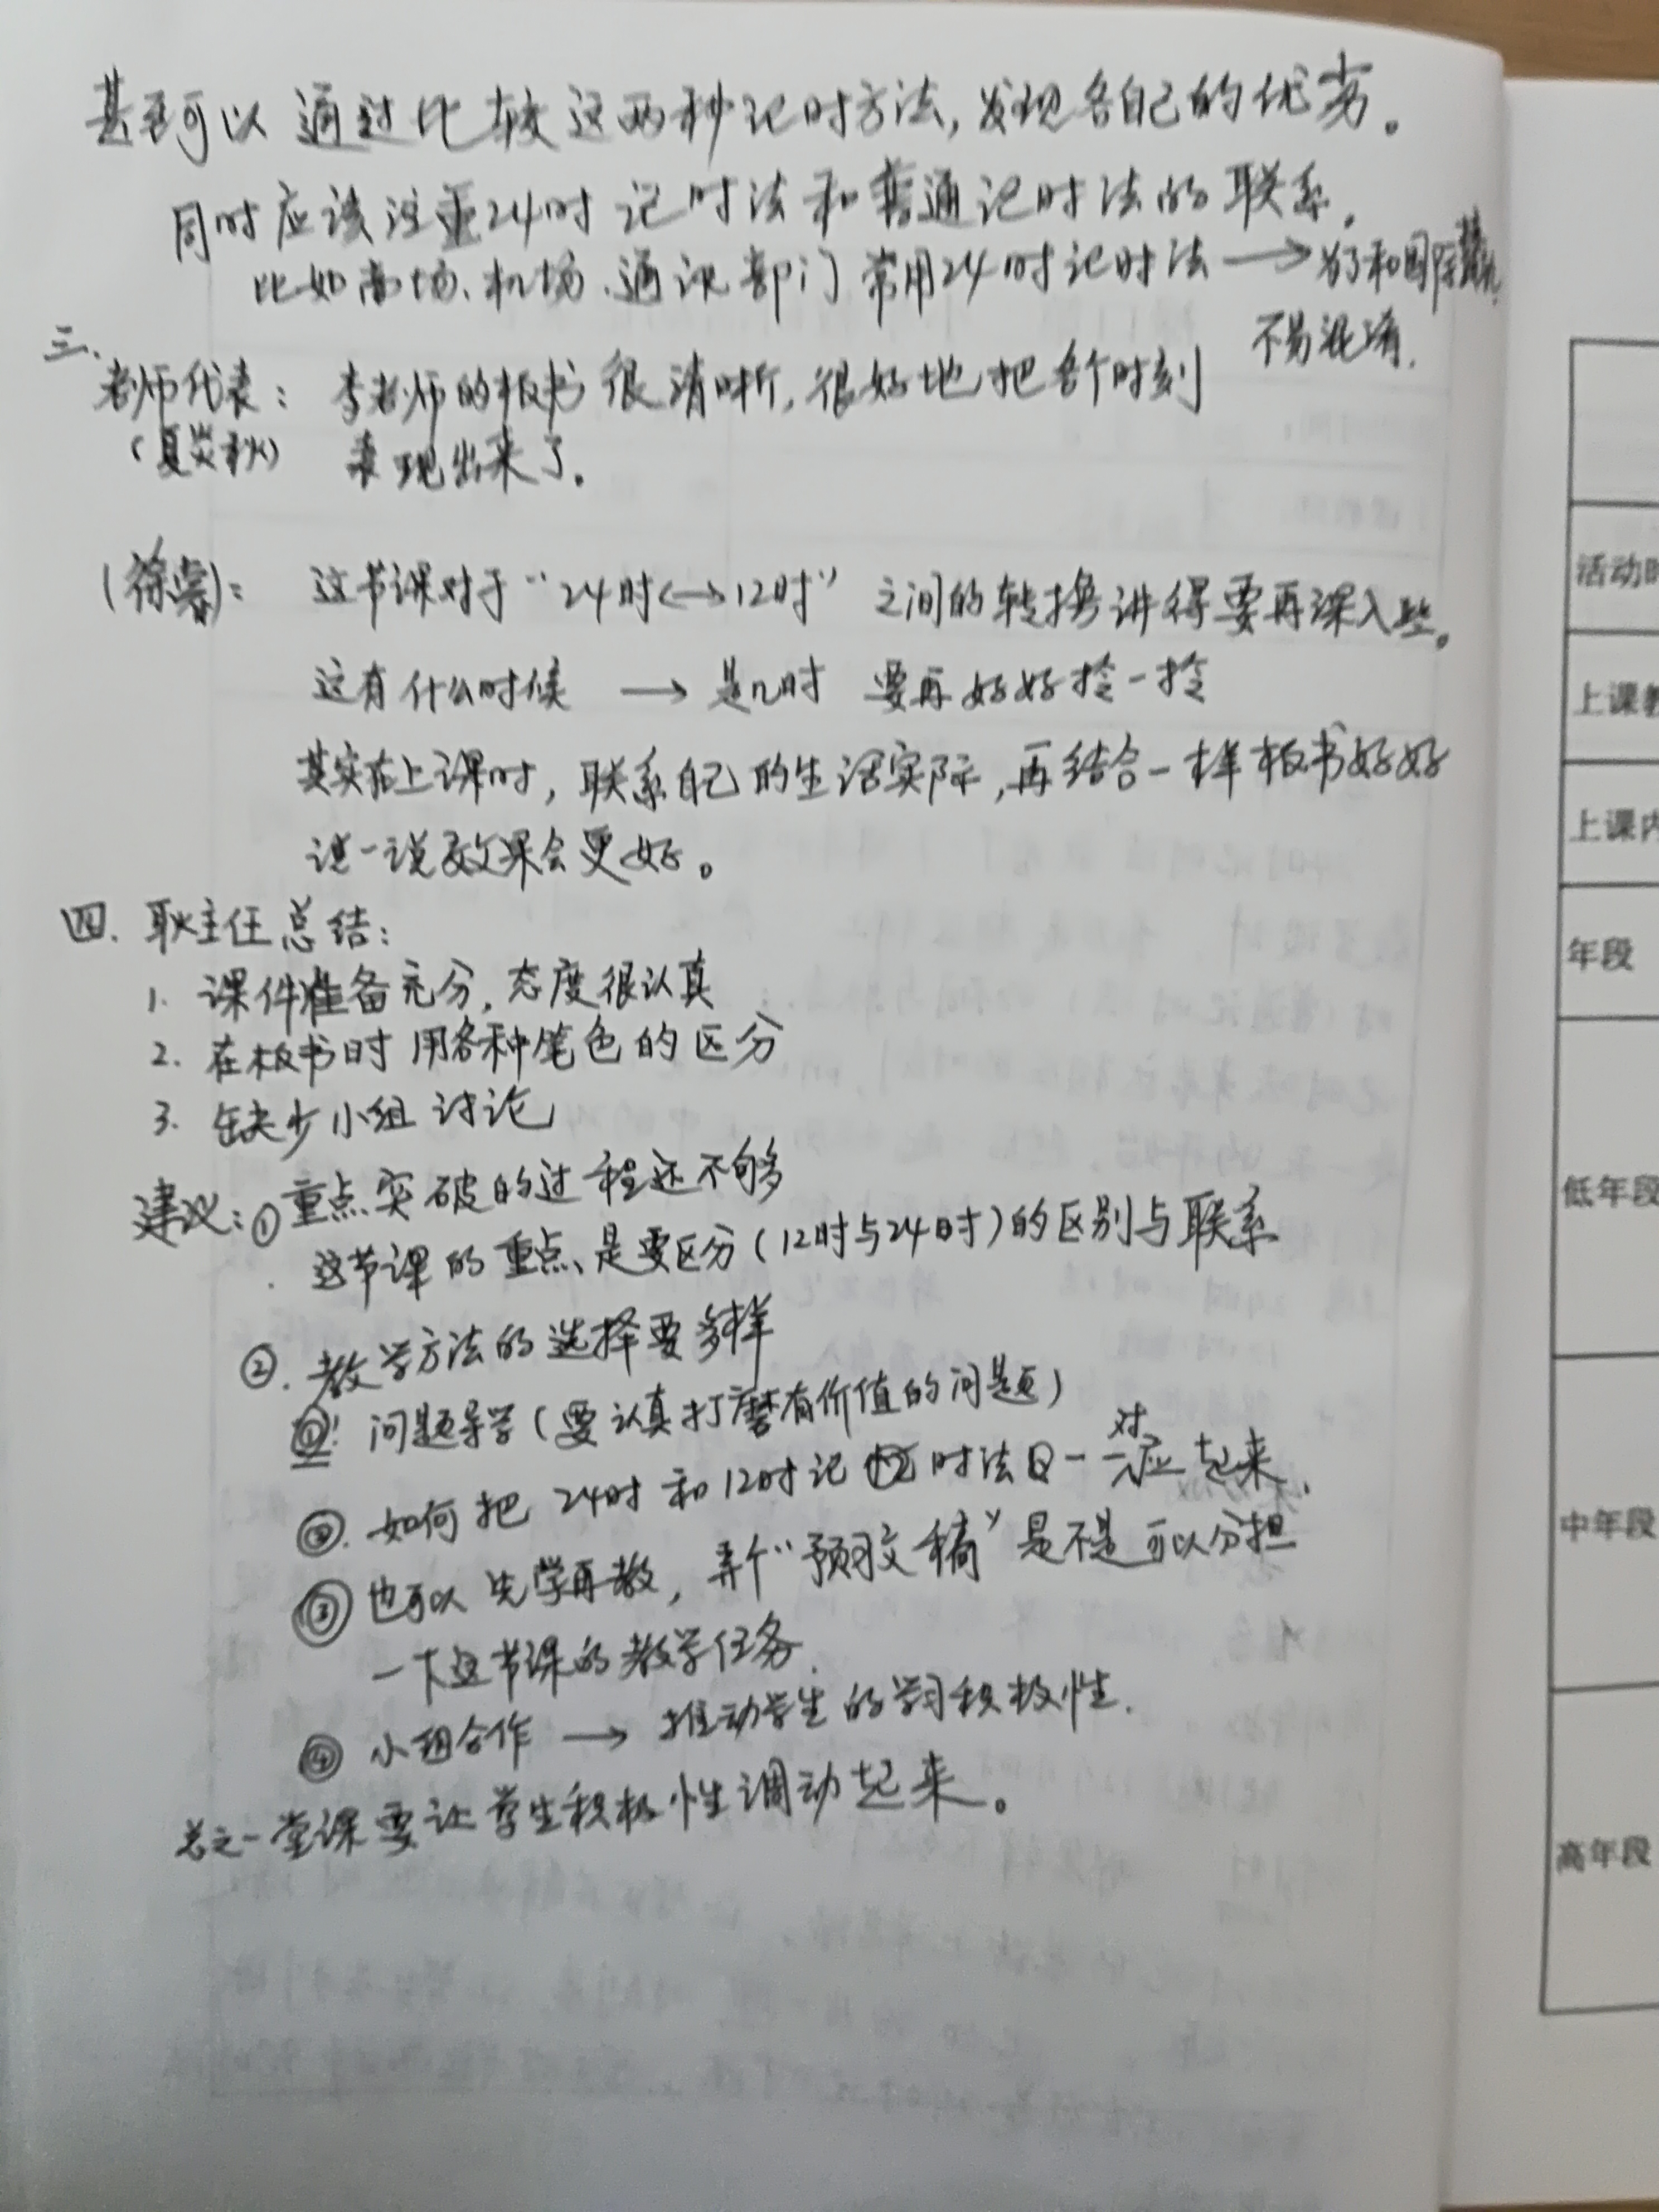 甚至可以通过比较这两种记时方法,发现各自己的优劣。
同时应该注重24时记时法和普通记时法的联系,
比如商场、机场、通讯部门常用24时记时法 → 为了和国际
不易混淆.
三.
老师代表: 李老师的板书很清晰,很好地把各个时刻
(夏炎秋) 表现出来了.
(徐): 这节课对于“24时↔12时”之间的转换讲得要再深入些。
这有什么时候 → 是几时 要再好好拎一拎
其实在上课时,联系自己的生活实际,再结合一样板书好好
说一说效果会更好。
四. 耿主任总结:
1. 课件准备充分,态度很认真
2. 在板书时用各种笔色的区分
3. 缺少小组讨论
建议:① 重点突破的过程还不够
这节课的重点、是要区分(12时与24时)的区别与联系
②. 教学方法的选择要多样
①! 问题导学(要认真打磨有价值的问题)
②. 如何把24时和12时记时法一一对应起来.
③ 也可以先学再教,弄个“预习文稿”是不是可以分担
一下这节课的教学任务.
④ 小组合作 → 推动学生的学习积极性.
总之一堂课要让学生积极性调动起来。
活动时
上课教
上课内
年段
低年段
中年段
高年段